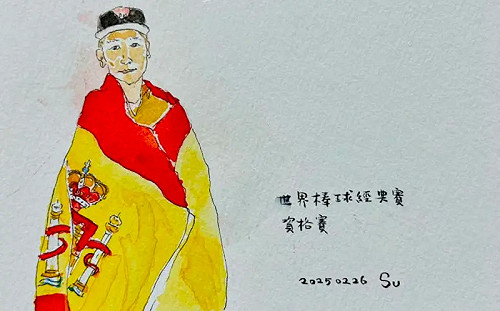 世界棒球經典賽
資格賽
20250226 Su